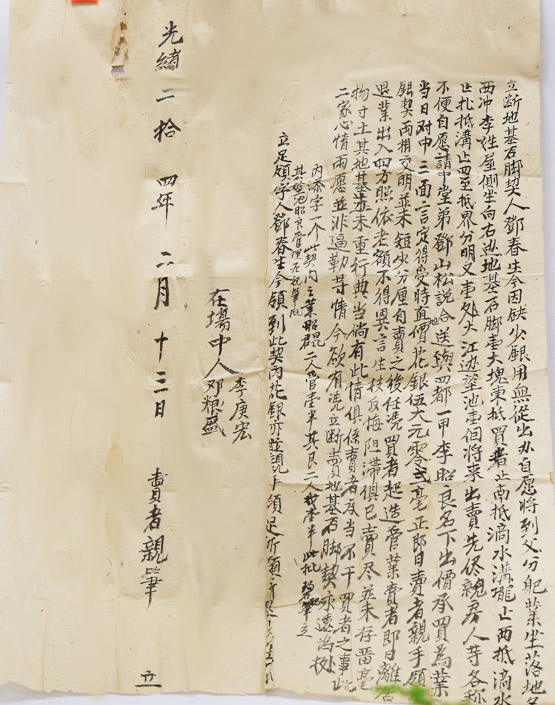 立断地基石脚契人鄧春生今因缺少銀用無從出办自愿将到父分肥業坐落地名
西冲李姓屋側坐向右点地基一石脚壹大塊東抵買者止南抵滴水溝止西抵滴水
止北抵溝止四至抵界分明又壹处大江边壹池壹個将来出賣先侭親房人等各称
不便自愿請中堂弟鄧山松說合送與四都一甲李昭良名下出價承買為業
当日对中三面言定得受時直價花銀伍大元零弍毫正即日賣者親手領
銀契両相交明並未短少分厘自賣之後任洗買者起造管業賣者即日離居
退業出入四方照依老額不得異言生枝反悔阻滞俱已賣尽並未存畱毫
物寸土其地基並未重行典当倘有此情俱係賣者承当不干買者之事此
二家心情両愿並非逼勒等情今欲有洗立断賣地基石脚契永遠為挍
内添字一个此契内之業昭 二人管壹半其良二人 壹半此批
立足領字人鄧春生今領到此契内花銀亦並
在場中人 李庚宏
鄧 盛
光緒二拾四年二月十三日 賣者親筆 立